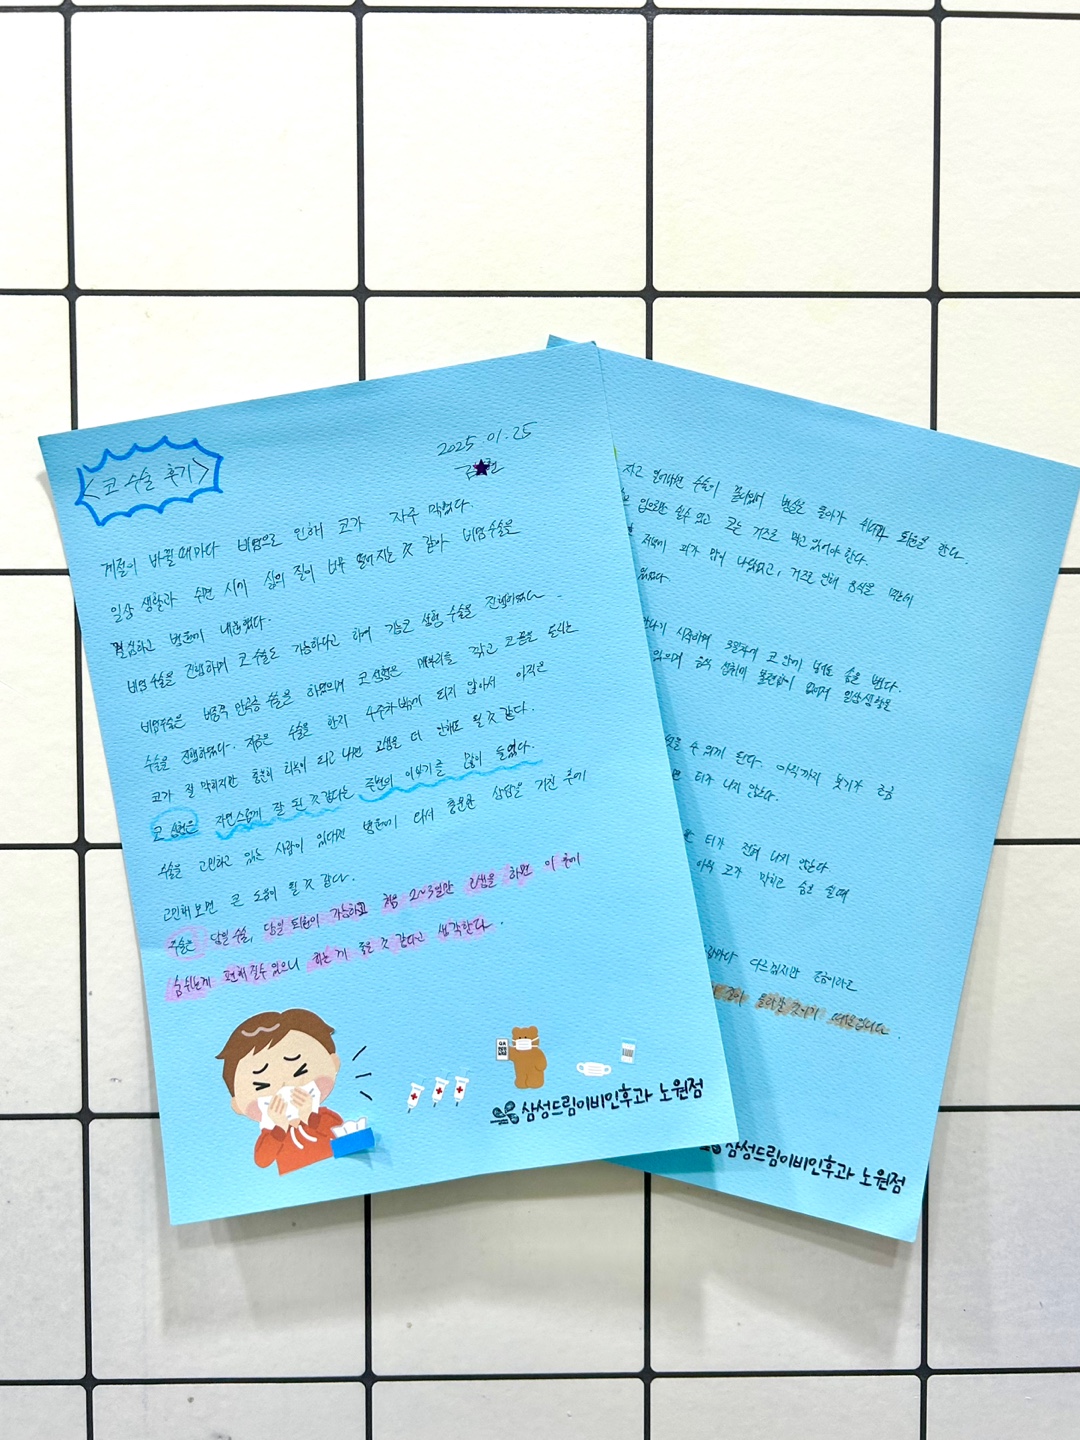 <코 수술 후기>
2025.01.25
계절이 바뀔때마다 비염으로 인해 코가 자주 막혔다.
일상 생활과 수면 시에 삶의 질이 너무 떨어지는 것 같아 비염수술을
결심하고 병원에 내원했다.
비염수술을 진행하며 코 수술도 가능하다고 하여 기능코 성형 수술을 진행하였다.
비염수술은 비중격 만곡증 수술을 하였으며 코 성형은 매부리를 깎고 코 끝을 올리는
수술을 진행하였다. 지금은 수술을 한지 4주차밖에 되지 않아서 아직은
코가 잘 막히지만 충분히 회복이 되고 나면 고생을 더 안해도 될 것 같다.
코 성형은 자연스럽게 잘 된 것 같다는 주변의 이야기를 많이 들었다.
수술을 고민하고 있는 사람이 있다면 병원에 와서 충분한 상담을 거친 후에
고민해 보면 큰 도움이 될 것 같다.
수술은 당일 수술, 당일 퇴원이 가능하고 처음 2~3일만 고생을 하면 이 후에
숨쉬는게 편해질수 있으니 하는 게 좋을 것 같다고 생각한다.
삼성드림이비인후과 노원점
자고 일어나면 수술이 끝나있어 병실로 돌아가 쉬다가 퇴원을 한다.
입으로만 쉴수 있고 코는 거즈로 막고 있어야 한다.
저녁에 피가 많이 나왔었고, 거즈로 인해 음식을 먹는데
시작하며 3일차에 코 안에 넣어둔 솜을 뺀다.
있으며 음식 섭취의 불편함이 없어져 일상생활을
수 있게 된다. 아직까지 붓기가 조금
티가 나지 않는다.
티가 전혀 나지 않는다
아직 코가 막히고 숨쉴 때
다르겠지만 조금이라도
좋아 때문입니다.
삼성드림이비인후과 노원점